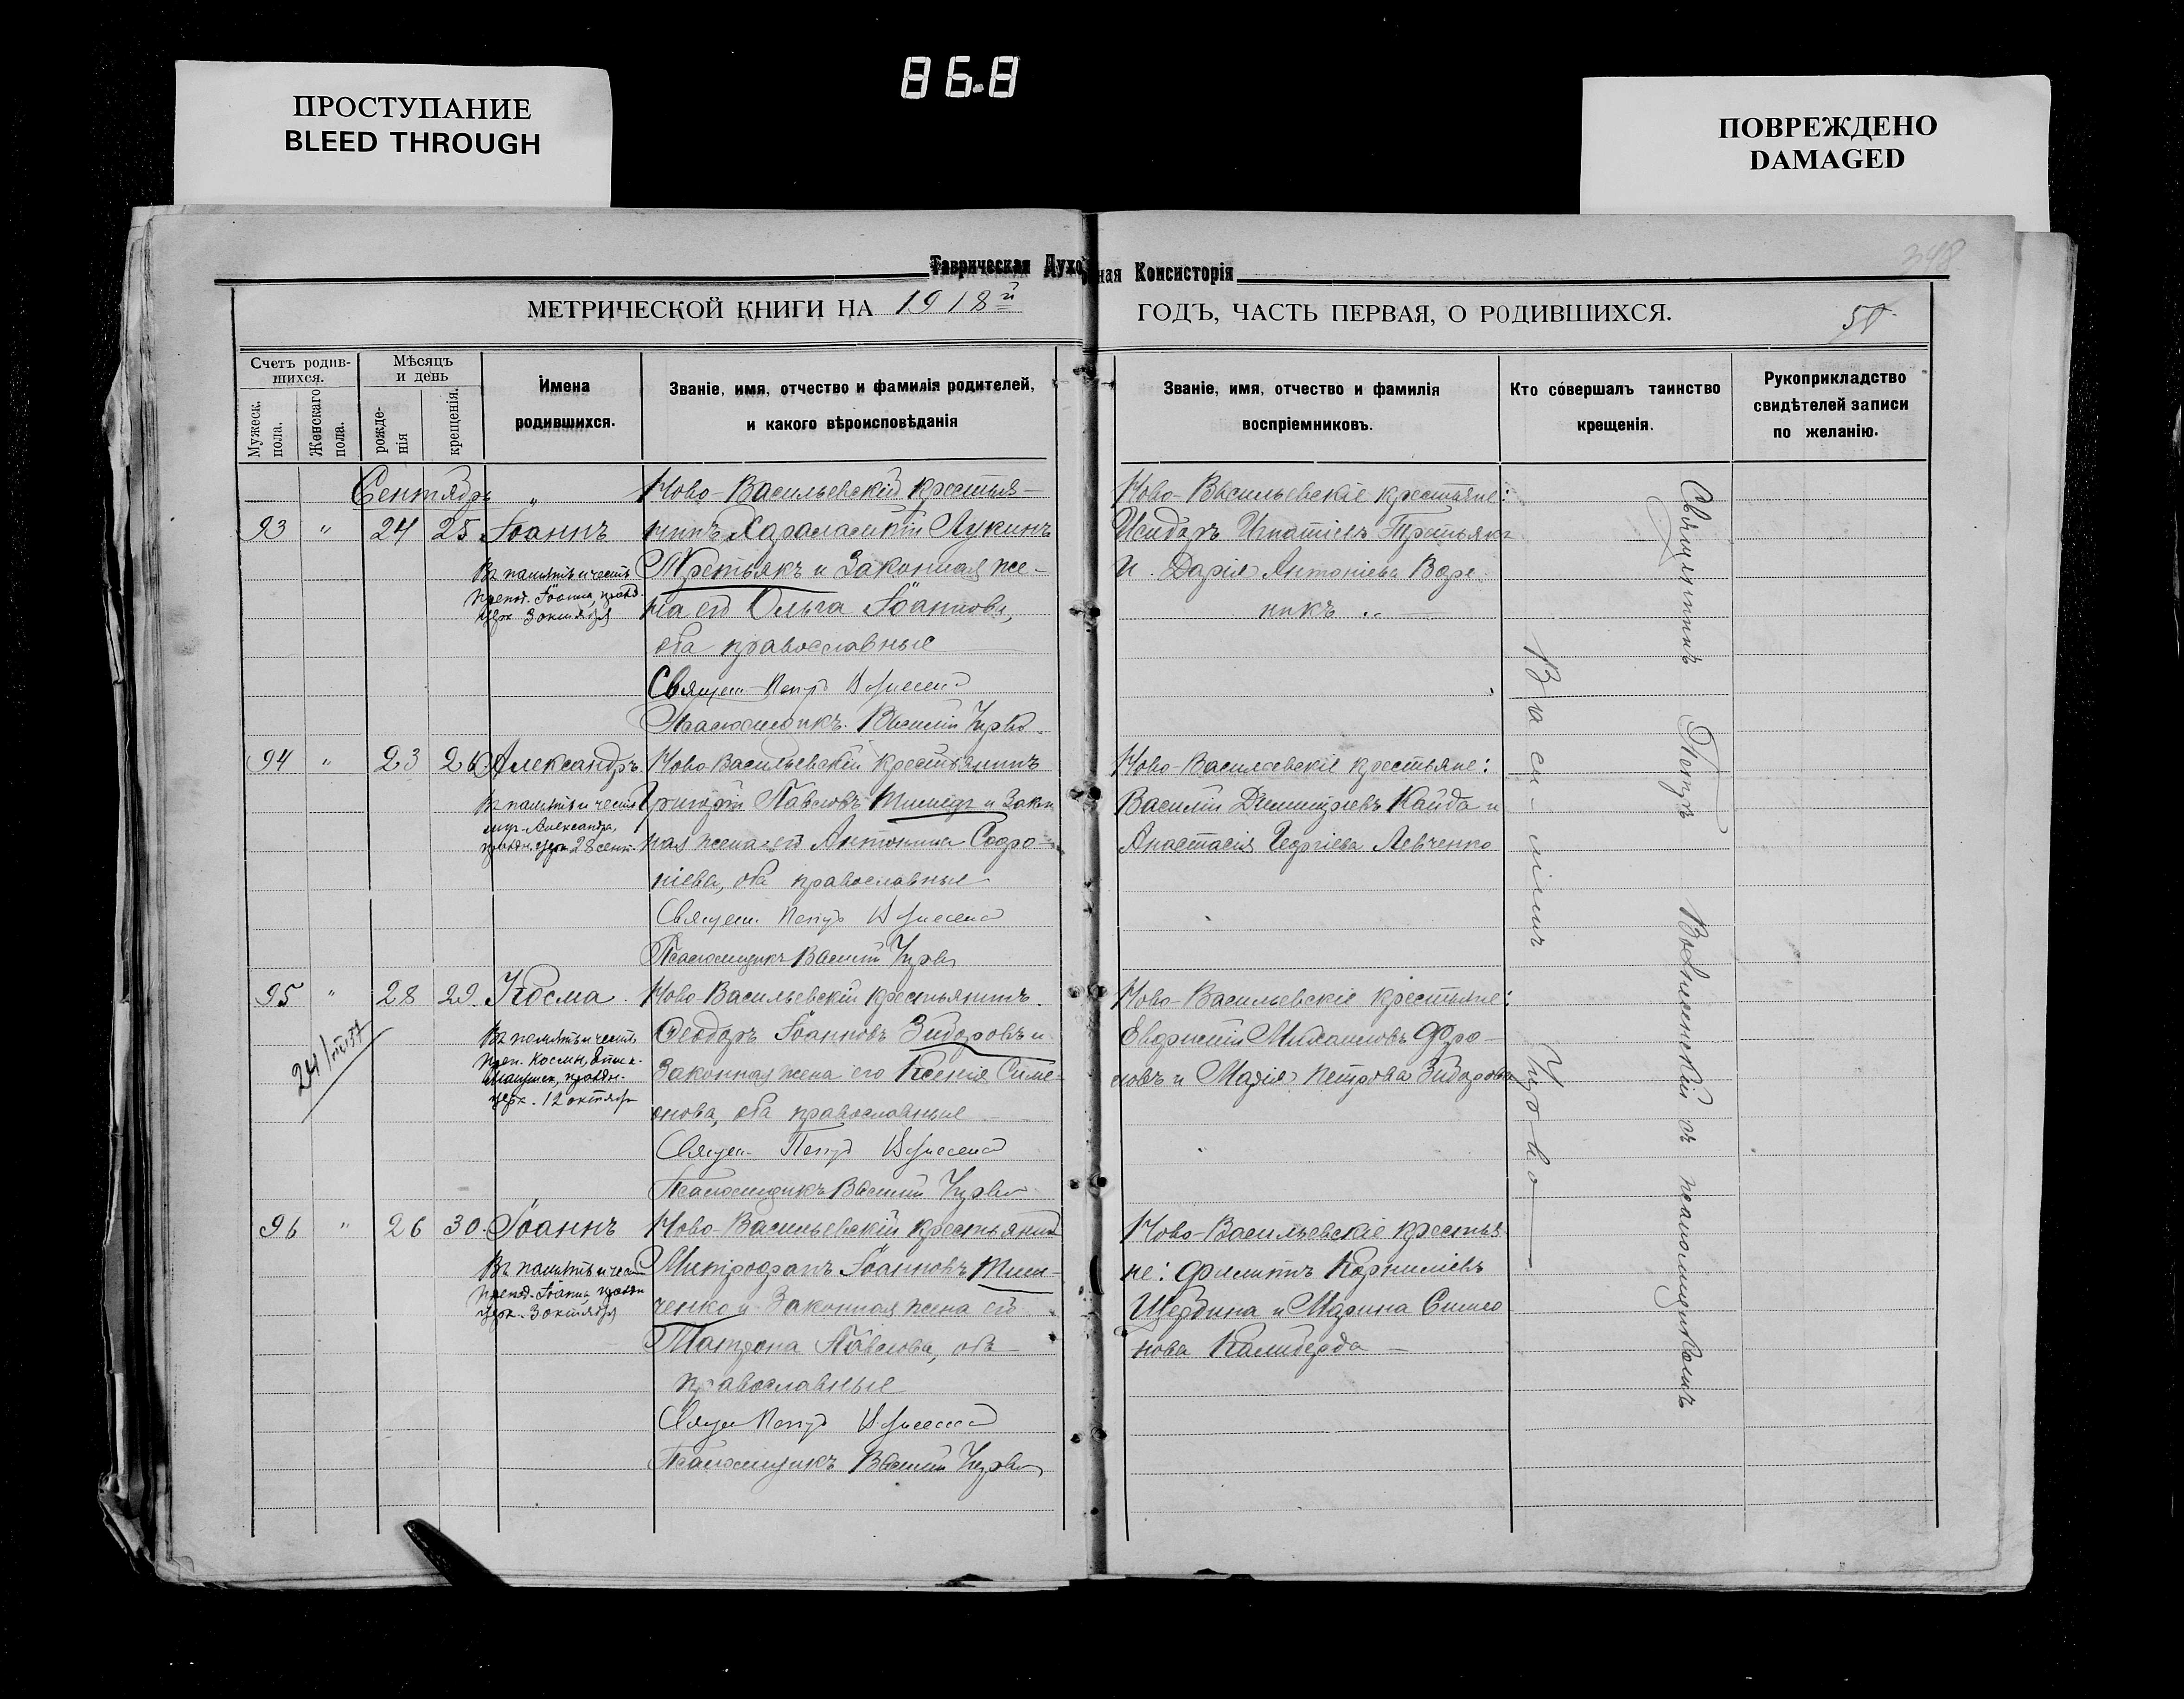 86.8
ПРОСТУПАНИЕ
BLEED THROUGH
ПОВРЕЖДЕНО
DAMAGED
348
Таврическая Духовная Консисторія
МЕТРИЧЕСКОЙ КНИГИ НА 1918й ГОДЪ, ЧАСТЬ ПЕРВАЯ, О РОДИВШИХСЯ.
50
Счетъ родив-
шихся.
Мужеск.
пола.
Женскаго
пола.
Мѣсяцъ
и день
рожде-
нія
крещенія.
Имена
родившихся.
Званіе, имя, отчество и фамилія родителей,
и какого вѣроисповѣданія
Званіе, имя, отчество и фамилія
воспріемниковъ.
Кто совершалъ таинство
крещенія.
Рукоприкладство
свидѣтелей записи
по желанію.
Сентябрь "
93 " 24 25 Іоаннъ
Въ память и честь
препод. Іоанна, празд.
церк 3 октября
Ново-Васильевскій крестья-
нинъ Харалампій Лукинъ
Третьякъ и законная же-
на его Ольга Іоаннова,
оба православные
Священ Петръ Вознесенс
Псаломщикъ Василій Чурko
Ново-Васильевскіе крестьяне:
Исидоръ Игнатіевъ Третьякъ
и Дарія Антоніева Варе-
никъ
94 " 23 26 Александръ
Въ память и честь
муч. Александра,
праздн. церк 28 сент.
Ново-Васильевскій крестьянинъ
Григорій Павловъ и закон
ная жена его Антонина Софро-
ніева, оба православные
Священ. Петръ Вознесенс
Псаломщикъ Василій
Ново-Васильевскіе крестьяне:
Василій Димитріевъ Кайда и
Анастасія Георгіева Левченко
95 " 28 29 Косма
24/
Въ память и честь
преп. Космы, Еписк.
Маіумск, праздн.
церк. 12 октября
Ново-Васильевскій крестьянинъ
Ѳеодоръ Іоанновъ Зидоровъ и
законная жена его Ксенія Симе-
онова, оба православные
Священ Петръ Вознесенс
Псаломщикъ Василій
Ново-Васильевскіе крестьяне:
Михаиловъ Фро-
ловъ и Марія Петрова Зидорова
96 " 26 30 Іоаннъ
Въ память и честь
препод. Іоанна праздн
церк. 3 октября
Ново-Васильевскій крестьянинъ
Митрофанъ Іоанновъ Тим-
ченко и законная жена его
Матрона Павлова, оба
православные
Священ Петръ Вознесенс
Псаломщикъ Василій
Ново-Васильевскіе крестья
не: Филиппъ Корниліевъ
Щербина и Марина Симео
нова Калиберда
Священникъ Петръ Вознесенскій съ псаломщикомъ
Васи-ліемъ